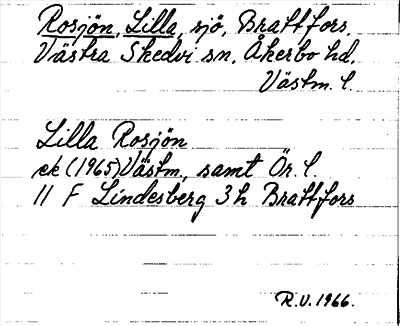 Rosjön, Lilla, sjö, Brattfors.
Västra Skedvi sn. Åkerbo hd.
Västm. l.
Lilla Rosjön
ek (1965) Västm., samt Ör. l.
11 F Lindesberg 3h Brattfors
R.V. 1966.